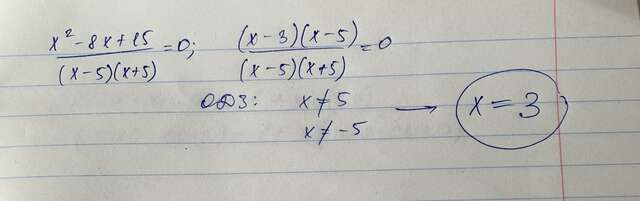 (x² - 8x + 15) / ((x-5)(x+5)) = 0; ((x-3)(x-5)) / ((x-5)(x+5)) = 0
ОДЗ: x ≠ 5 → x = 3
x ≠ -5